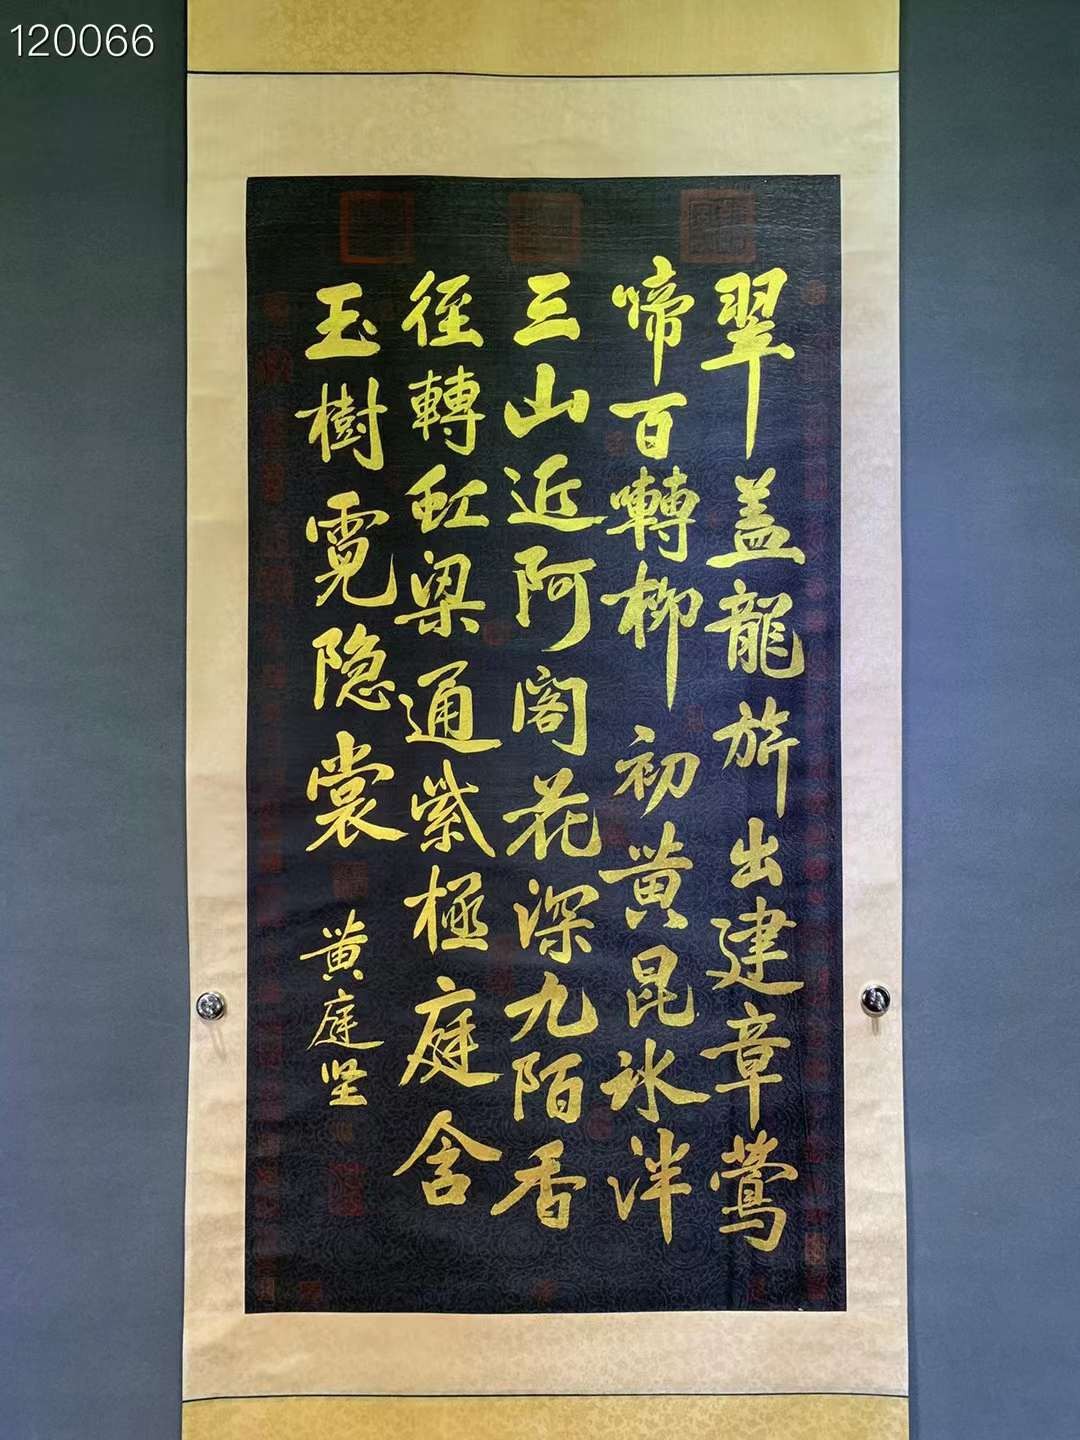 120066
翠盖龍旂出建章鶯
啼百囀柳初黄昆氷泮
三山近阿阁花深九陌香
徑轉虹梁通紫極庭含
玉樹霓隐裳
黄庭坚